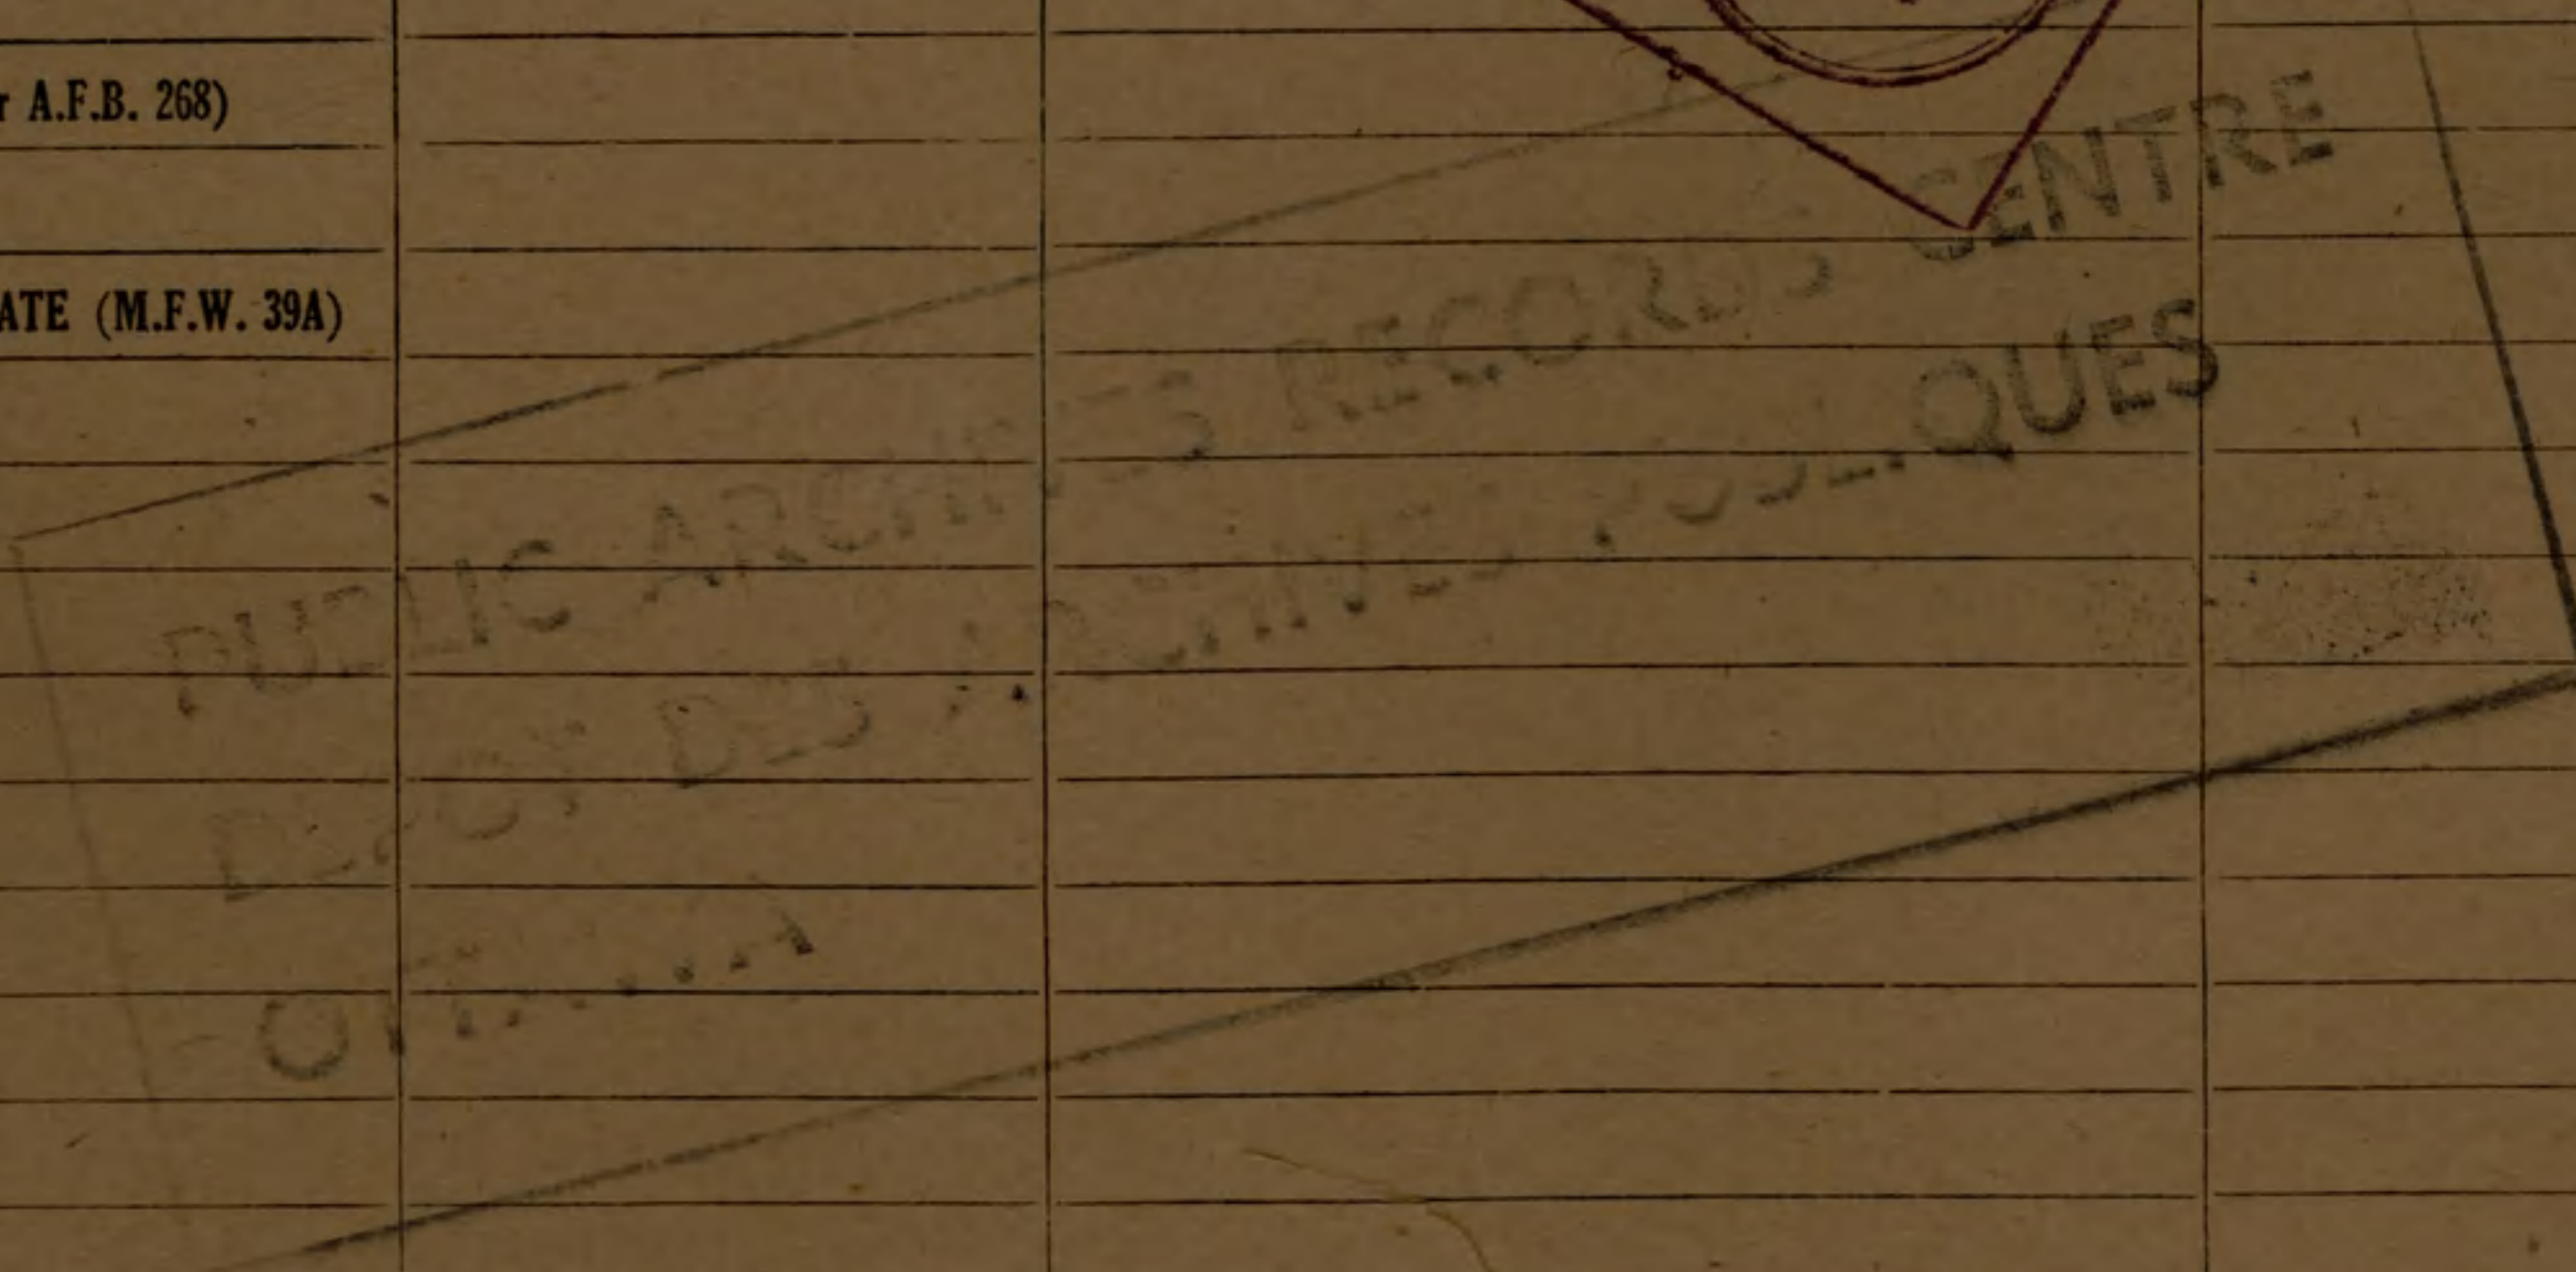 r A.F.B. 268)
ATE (M.F.W. 39A)
PUBLIC ARCHIVES RECORDS CENTRE
DEPOT DES ARCHIVES PUBLIQUES
OTTAWA